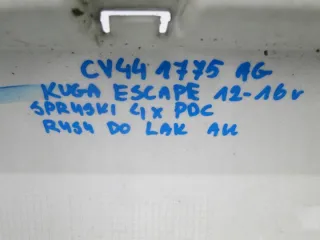 CV44 1775 AG
KUGA ESCAPE 12-16r
SPRYSKI 4x PDC
RYSY DO LAK AU